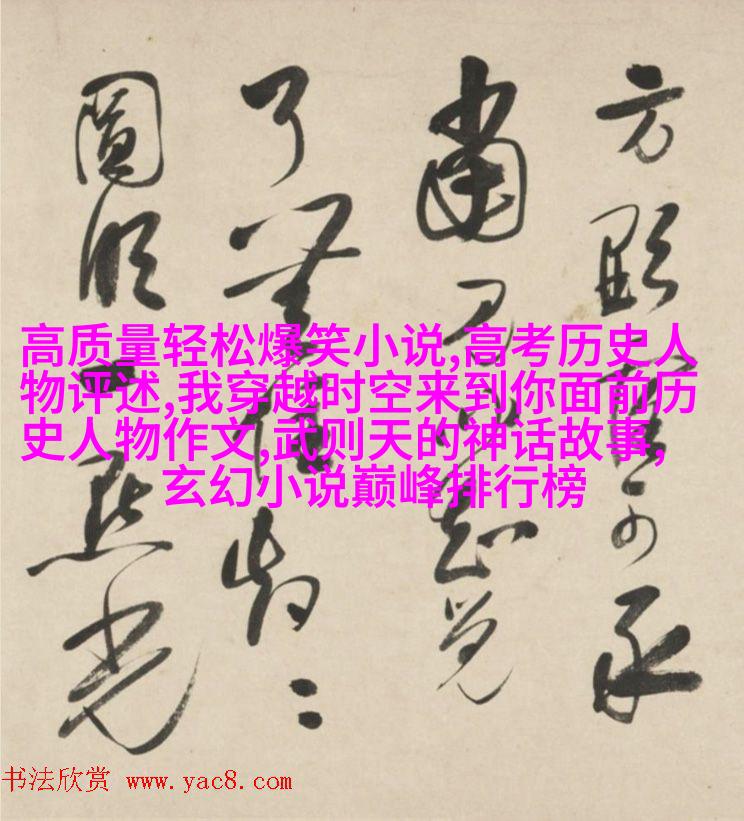 高质量轻松爆笑小说,高考历史人
物评述,我穿越时空来到你面前历
史人物作文,武则天的神话故事,
玄幻小说巅峰排行榜
方可承
知觉
了無時
圓明一點光
书法欣赏 www.yac8.com